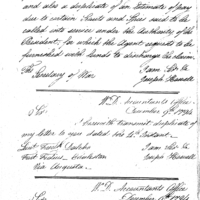 and also a duplicate of an Estimate of pay
due to certain Scouts and Spies said to be
called into service under the Authority of the
President, for which the Agent requests to be
furnished with funds to discharge the claim
The I am Sir &
Secretary of War Joseph Howell
W.D. Accountants Office
Sir. December 9th 1794
I herewith transmit duplicate of
my letter to you dated
I am Sir &
Joseph Howell
Fort Charleston
Via Augusta
W.D. Accountants Office
Sir. December 1794